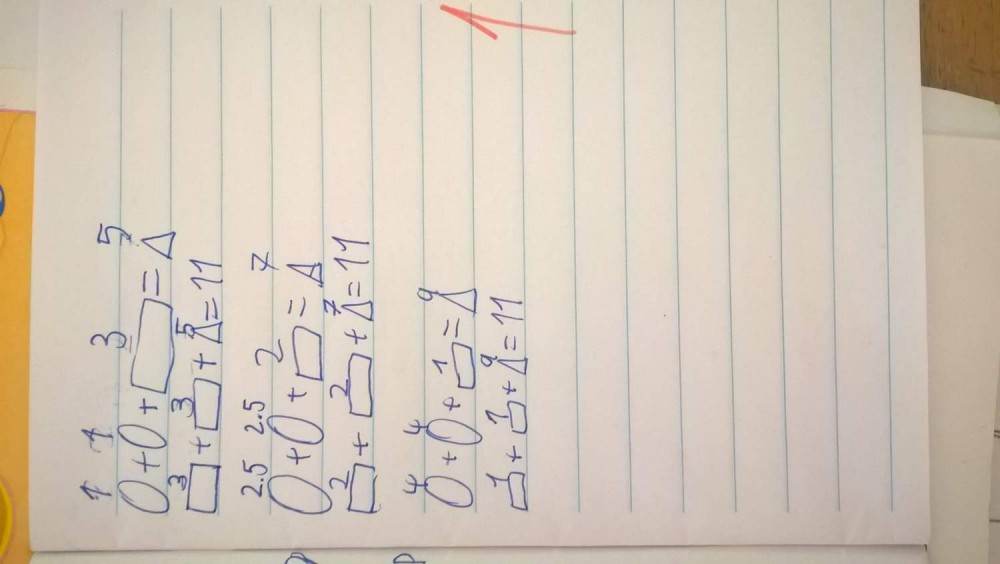 1 1 3 5
O+O+▭=△
3 3 5
▭+▭+△=11
2.5 2.5 2 7
O+O+▭=△
2 2 7
▭+▭+△=11
4 4 1 9
O+O+▭=△
1 1 9
▭+▭+△=11